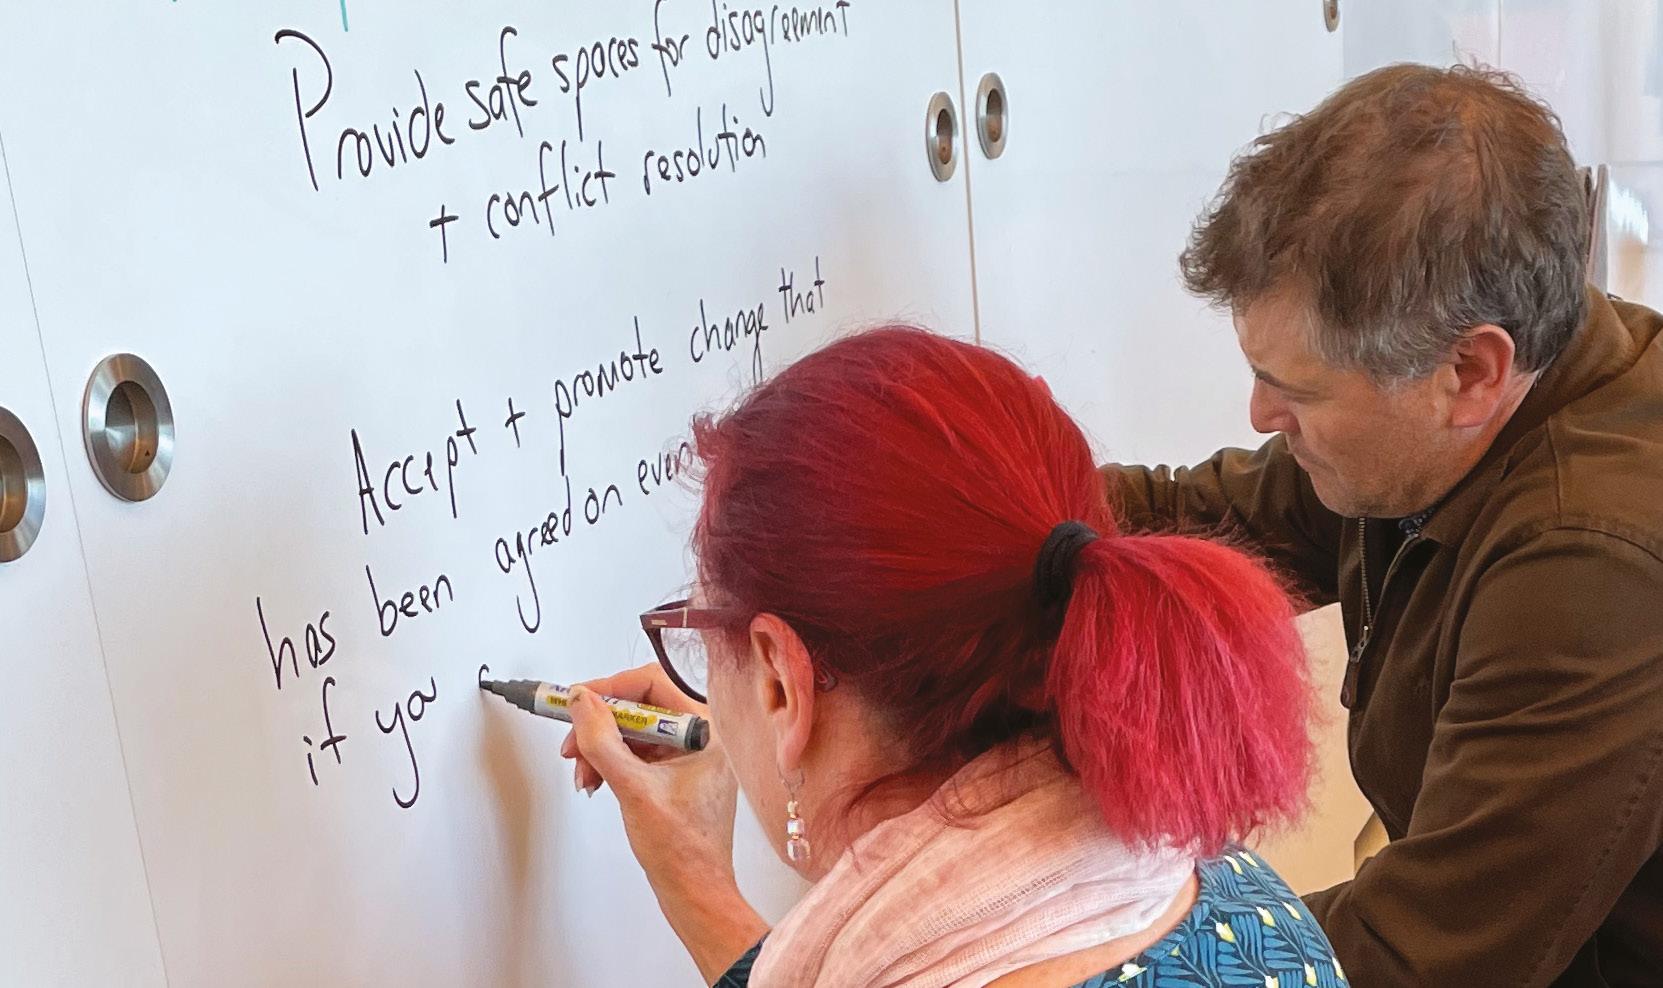 Provide safe spaces for disagreement
+ conflict resolution
Accept + promote change that
has been agreed on even
if yo
MARKER